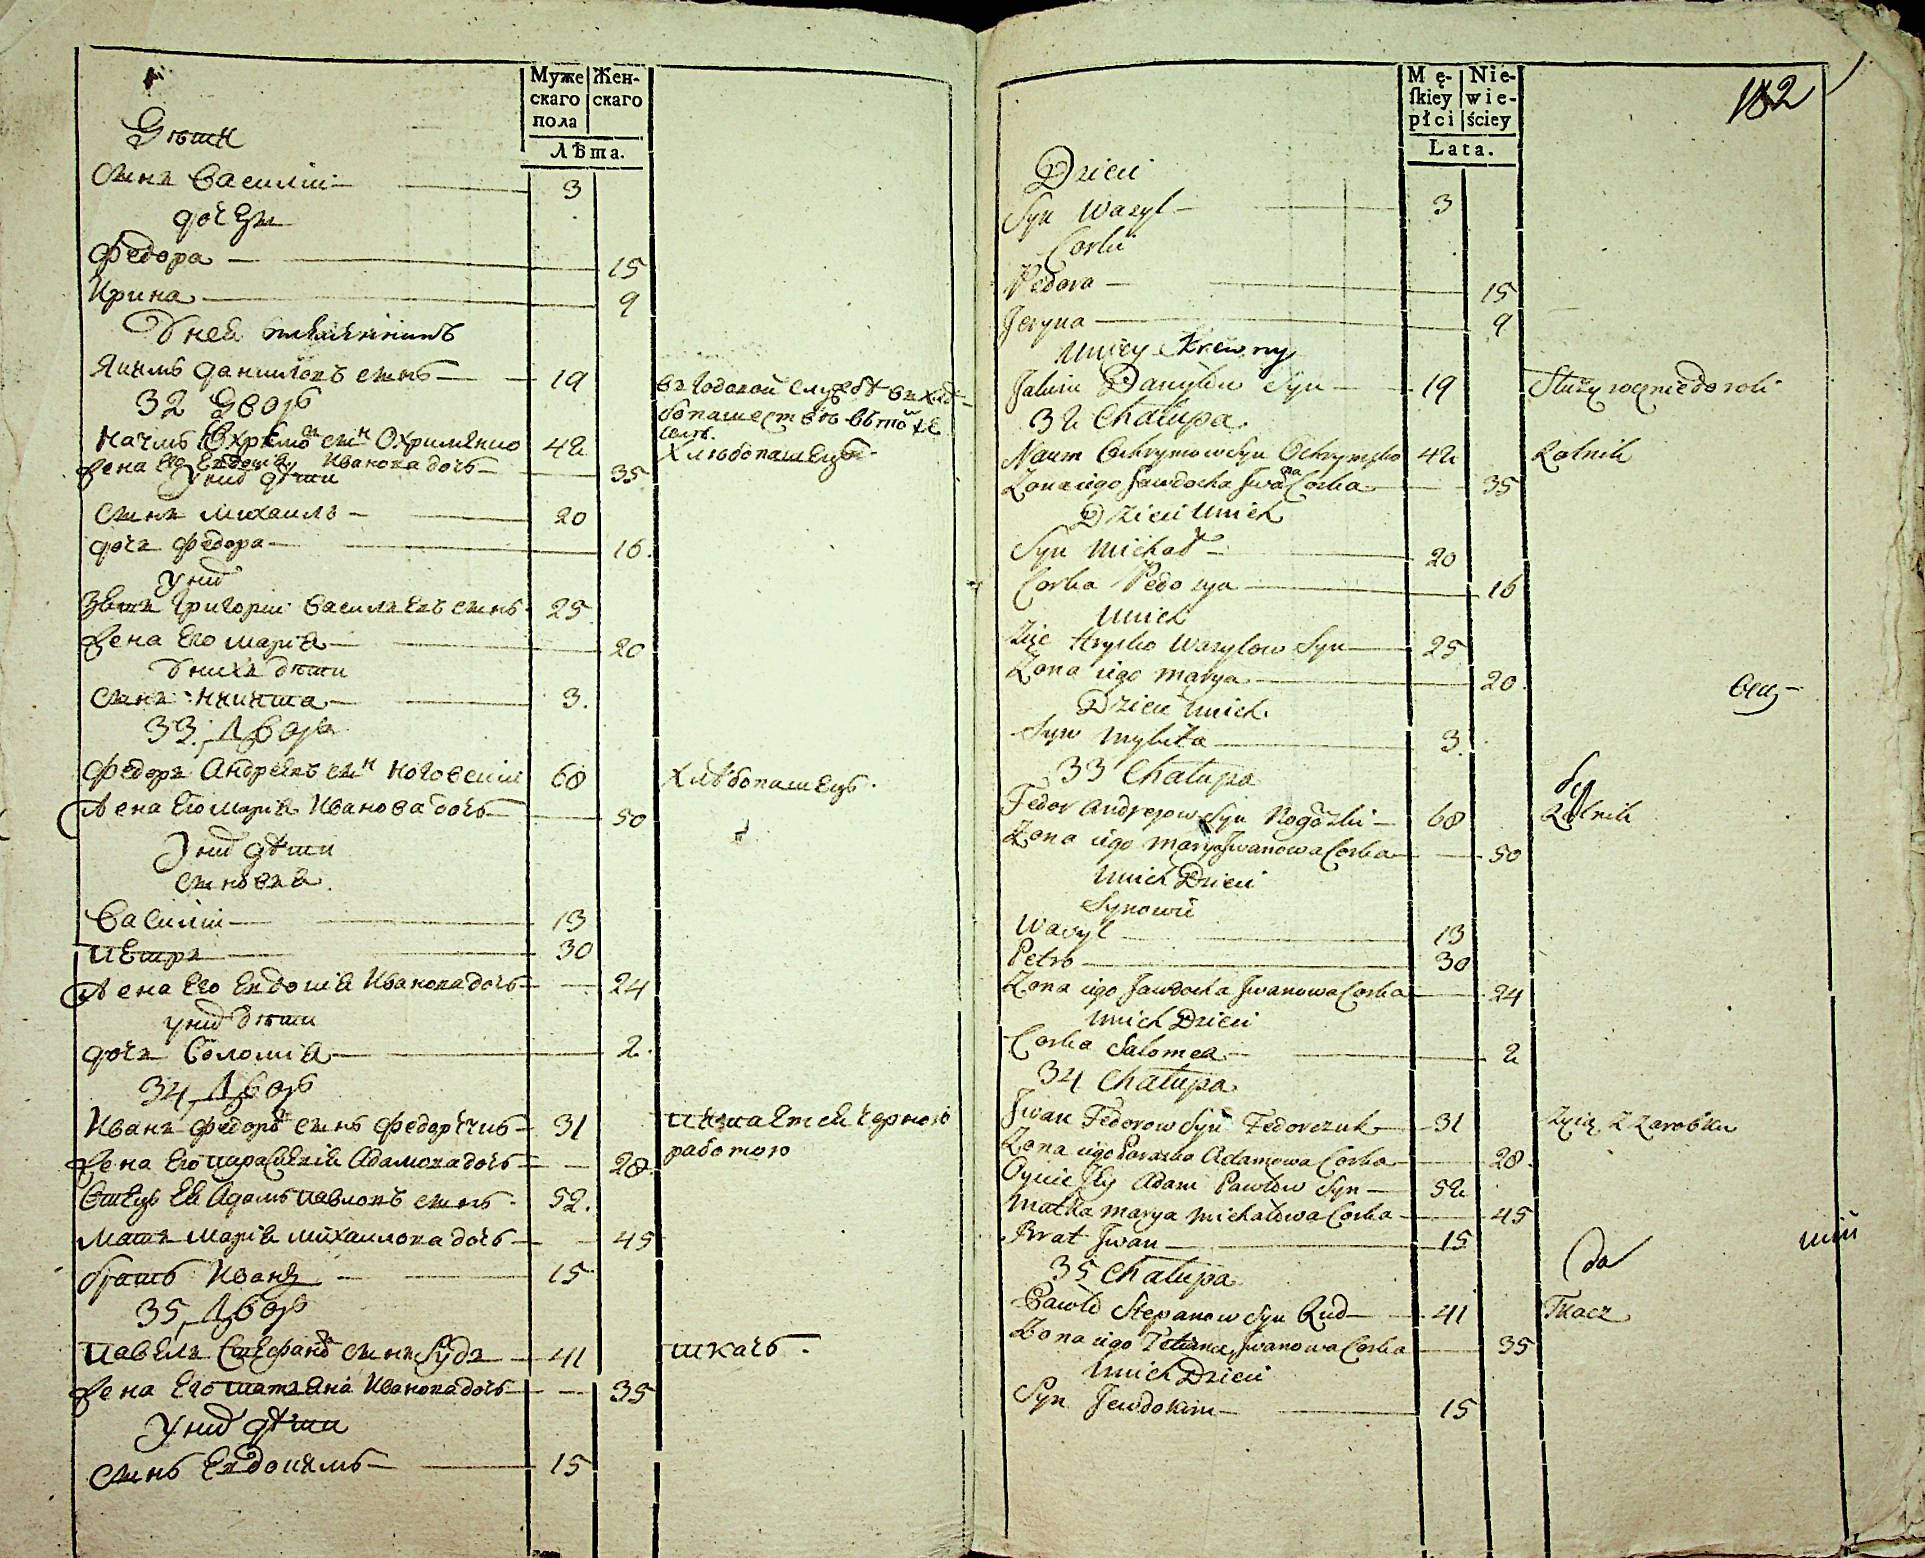 Муже
скаго
пола
Жен-
скаго
Лѣта.
Дѣти
Сынъ Василіи 3
дочери
Федора 15
Ирина 9
Якимъ Даниловъ сынъ 19
въ годовой службѣ въ хлѣ-
бопашествѣ въ той же
32 Дворъ
Наумъ Охрѣмовъ сынъ Охрименко 42 Хлѣбопашецъ
Жена его Евдокія Иванова дочь 35
У них дѣти
Сынъ Михаилъ 20
дочь Федора 16
У них
Зять Григоріи Васильевъ сынъ 25
Жена его Марія 20
У нихъ дѣти
Сынъ Никита 3
33 Дворъ
Федоръ Андреевъ сын Ноговскіи 68 Хлѣбопашецъ
Жена его Марія Иванова дочь 50
У них дѣти
сыновья
Василіи 13
Петръ 30
Жена его Евдокія Иванова дочь 24
У них дѣти
дочь Соломия 2
34 Дворъ
Иванъ Федоровъ сынъ Федорчукъ 31 питается черною
работою
Жена его Параскевія Адамова дочь 28
Отецъ ея Адамъ Павловъ сынъ 52
Мать Марія Михаилова дочь 45
Братъ Иванъ 15
35 Дворъ
Павелъ Стефановъ сынъ Рудъ 41 ткачъ
Жена его Татьяна Иванова дочь 35
У них дѣти
Сынъ Евдокимъ 15
Mę-
skiey
płci
Nie-
wie-
ściey
Lata.
182
Dzieci
Syn Wasyl 3
Corki
Pedora 15
Jeryna 9
Uniey Krewny
Jakim Danyłow Syn 19 Służy rocznie do roli
32 Chałupa
Naum Ochrymow Syn Ochrymenko 42 Rolnik
Zona iego Jawdocha Jwanowa Corka 35
Dzieci Unich
Syn Michał 20
Corka Pedosya 16
Unich
Zięć Hryćko Wasylow Syn 25
Zona iego Marya 20
Dzieci Unich
Syn Mykita 3
33 Chałupa
Fedor Andrejow Syn Nogoski 68 Rolnik
Zona iego Marya Jwanowa Corka 50
Unich Dzieci
Synowie
Wasyl 13
Petro 30
Zona iego Jawdocha Jwanowa Corka 24
Unich Dzieci
Corka Salomea 2
34 Chałupa
Jwan Fedorow Syn Fedorczuk 31 Żyią z Zarobku
Zona iego Paraska Adamowa Corka 28
Oyciec Jey Adam Pawłow Syn 52
Matka Marya Michałowa Corka 45
Brat Jwan 15
35 Chałupa
Pawło Stepanow Syn Rud 41 Tkacz
Zona iego Tetiana Jwanowa Corka 35
Unich Dzieci
Syn Jewdokim 15